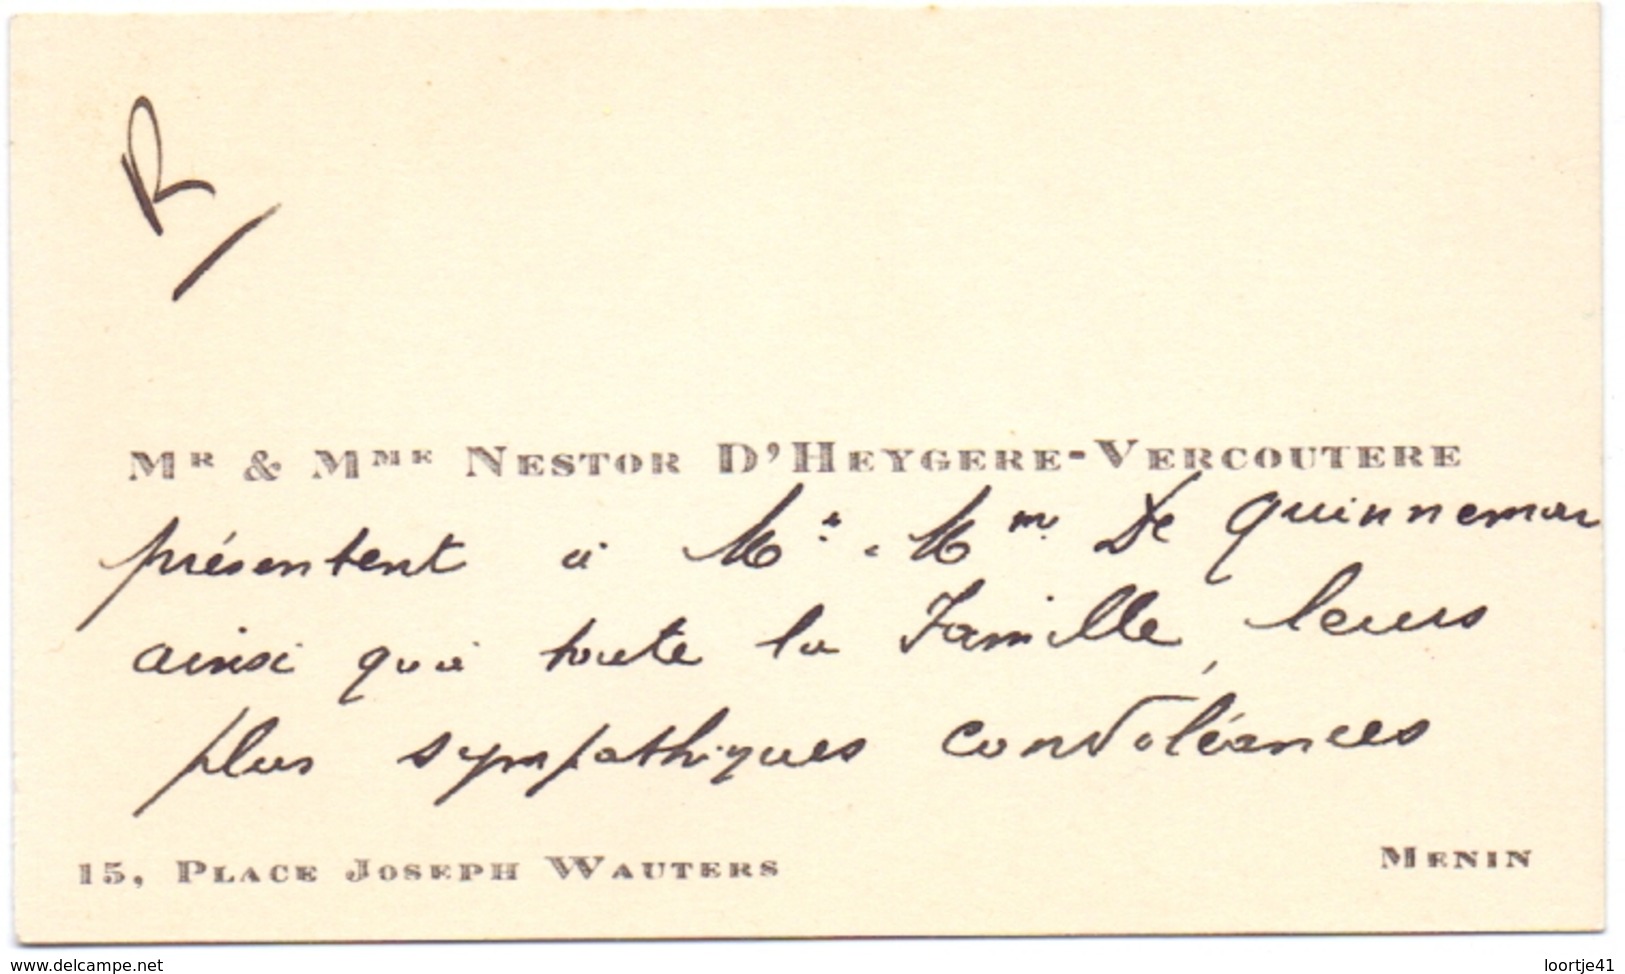 R
Mr & Mme Nestor D'Heygere-Vercoutere
présentent à Mr. & Mm De Quinnemar
ainsi qu'à toute la Famille, leurs
plus sympathiques condoléances
15, Place Joseph Wauters
Menin
www.delcampe.net
loortje41